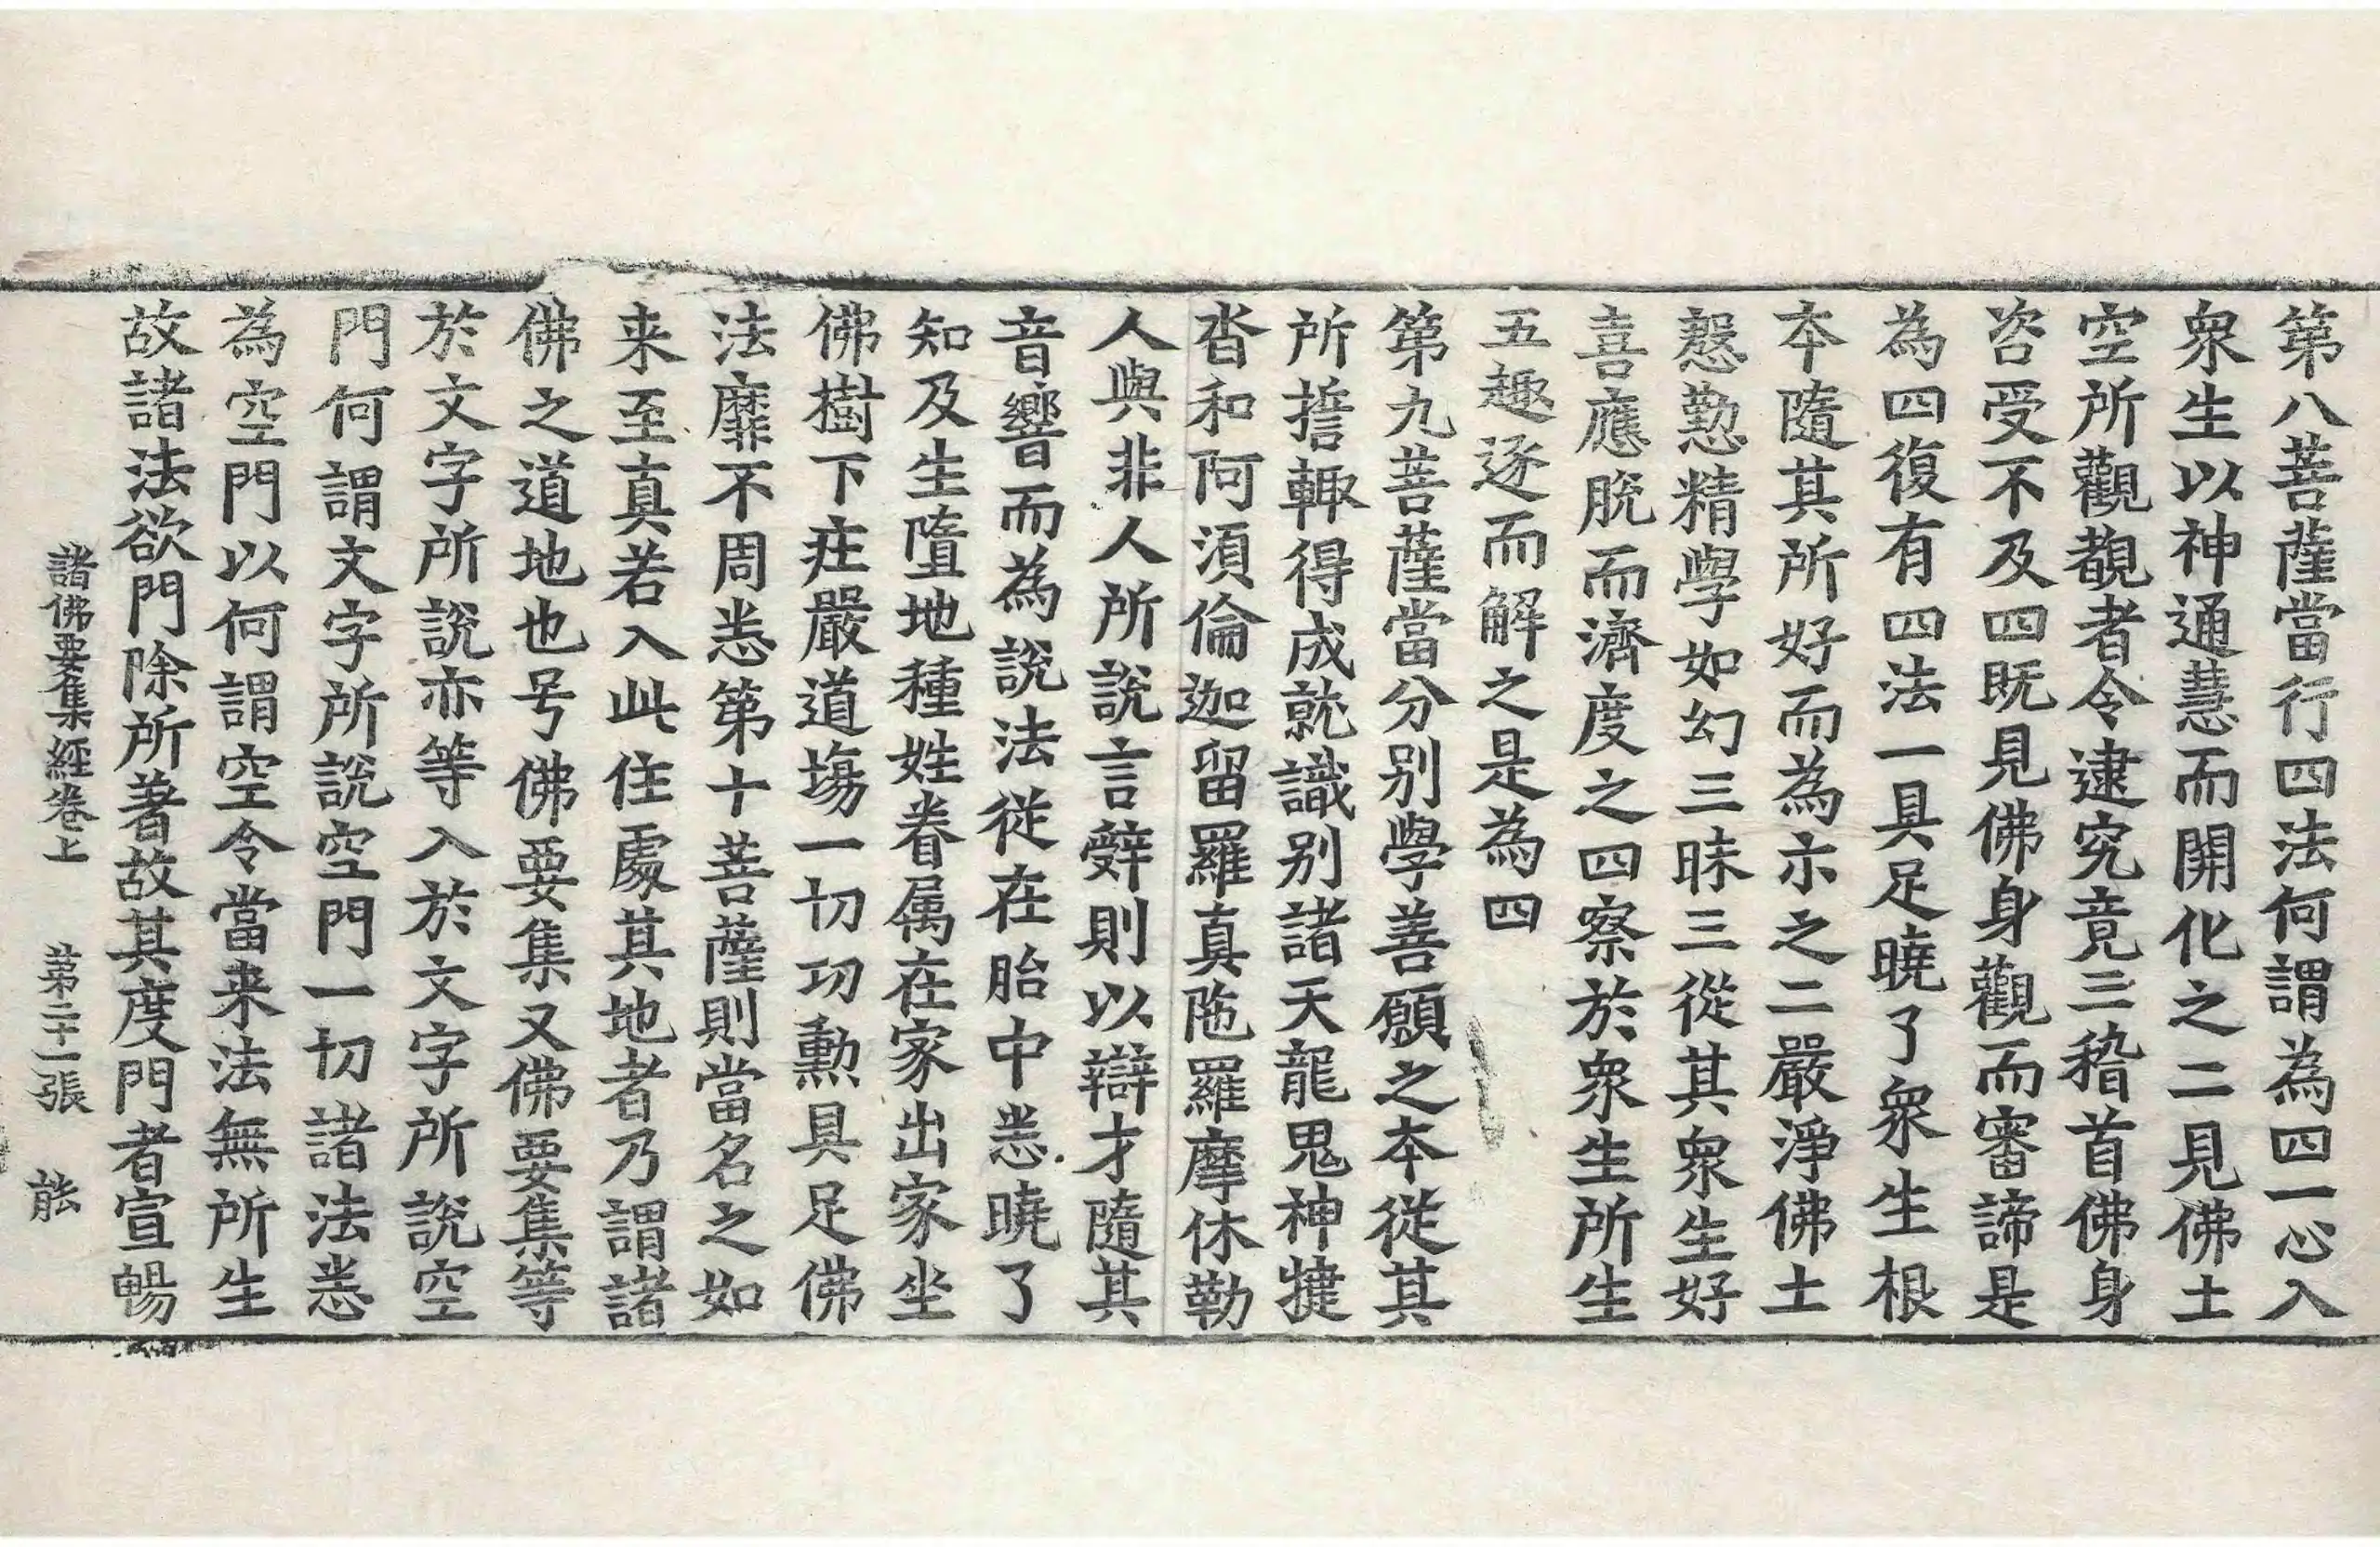 第八菩薩當行四法何謂為四一心入
衆生以神通慧而開化之二見佛土
空所觀覩者令逮究竟三稽首佛身
咨受不及四旣見佛身觀而審諦是
為四復有四法一具足曉了衆生根
本隨其所好而為示之二嚴淨佛土
慇懃精學如幻三昧三從其衆生好
喜應脫而濟度之四察於衆生所生
五趣逐而解之是為四
第九菩薩當分別學善願之本從其
所擔輙得成就識別諸天龍鬼神揵
沓和阿須倫迦留羅真陁羅摩休勒
人與非人所說言辭則以辯才隨其
音響而為說法從在胎中悉曉了
知及生墮地種姓眷属在家出家坐
佛樹下庄嚴道場一切功勲具足佛
法靡不周悉第十菩薩則當名之如
来至真若入此住處其地者乃謂諸
佛之道地也号佛要集又佛要集等
於文字所說亦等入於文字所說空
門何謂文字所說空門一切諸法悉
為空門以何謂空令當来法無所生
故諸法欲門除所著故其度門者宣暢
諸佛要集經卷上　第二十一張　能